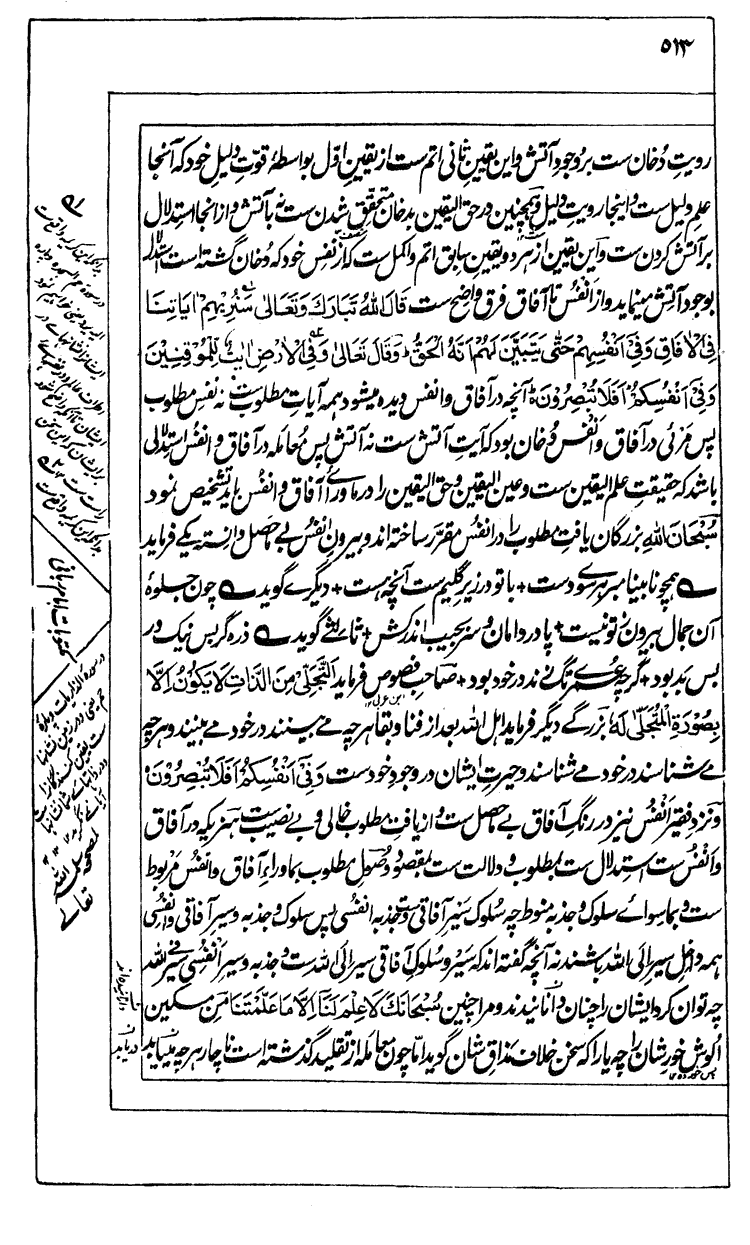 ۵۱۳
رویتِ دُخان ست بر وجود آتش و این یقینِ ثانی اتم ست از یقینِ اوّل بواسطۂ قوّتِ دلیل خود که آنجا
علمِ دلیل ست و اینجا رویتِ دلیل و همچنین در حق الیقین بدخان متحقق شدن ست نه بآتش و از انجا استدلال
بر آتش کردن ست و این یقین از هر دو یقین سابق اتم و اکمل ست که از نفسِ خود که دُخان گشته است استدلال
بوجود آتش مینماید و از اَنفُس تا آفاق فرق واضح ست قَالَ اللهُ تَبَارَكَ وَتَعَالٰى سَنُرِيهِمْ اٰيَاتِنَا
فِى الْاٰفَاقِ وَفِىْ اَنْفُسِهِمْ حَتّٰى يَتَبَيَّنَ لَهُمْ اَنَّهُ الْحَقُّ وَقَالَ تَعَالٰى وَفِى الْاَرْضِ اٰيَاتٌ لِّلْمُوْقِنِيْنَ
وَفِىْ اَنْفُسِكُمْ اَفَلَا تُبْصِرُوْنَ آنچه در آفاق و انفس دیده میشود همه آیات مطلوب ست نه نفس مطلوب
پس مرئی در آفاق و انفُس دُخان بود که آیتِ آتش ست نه آتش پس معامله در آفاق و انفُس استدلالی
باشد که حقیقتِ علم الیقین ست و عین الیقین و حق الیقین را در ماورائے آفاق و انفُس باید تشخیص نمود
سُبْحَانَ اللهِ بزرگان یافتِ مطلوب را در انفُس مقرر ساخته اند و بیرونِ انفُس بے حاصل دانسته یکے فرماید
ے همچو نابینا مبر هر سوے دست + با تو در زیر گلیم ست آنچه هست + دیگرے گوید ے چون جلوۀ
آن جمال بیرون ز تو نیست + پا در دامان و سر بجیب اندر کش + ثالثے گوید ے ذره گر بس نیک ور
بس بد بود + گرچه عمرے تگ زند در خود بود + صاحب فصوص فرماید التَّجَلِّىْ مِنَ الذَّاتِ لَا يَكُوْنُ اِلَّا
ابن عربی ۱۲
بِصُوْرَةِ الْمُتَجَلّٰى لَهٗ بزرگے دیگر فرماید اهل الله بعد از فنا و بقا هر چه مے بینند در خود مے بینند و هر چه
مے شناسند در خود مے شناسند و حیرتِ ایشان در وجودِ خود ست وَفِىْ اَنْفُسِكُمْ اَفَلَا تُبْصِرُوْنَ
و نزد فقیر اَنفُس نیز در رنگِ آفاق بے حاصل ست و از یافتِ مطلوب خالی و بے نصیب ست هر یکه در آفاق
و انفُس ست استدلال ست بمطلوب و دلالت ست بمقصود وصولِ مطلوب بماوراءِ آفاق و انفُس مربوط
ست و بماسوائے سلوک و جذبه منوط چه سُلوک سَیرِ آفاقی ست و جذبه انفُسی پس سلوک و جذبه و سیر آفاقی و انفُسی
همه داخلِ سیر الی الله باشند نه آنچه گفته اند که سَیر و سُلوک آفاقی سیر الی الله ست و جذبه و سیر اَنفُسی سَیر فی الله
چه توان کرد ایشان را چنان دانانیدند و مرا چنین سُبْحَانَكَ لَا عِلْمَ لَنَا اِلَّا مَا عَلَّمْتَنَا من مسکین
اُلوش خورِ شان را چه یارا که سخن خلافِ مذاقِ شان گوید امّا چون معامله از تقلید گذشته است ناچار هر چه مییابد
پس خورده ۱۲
مکتوبات امام ربانی